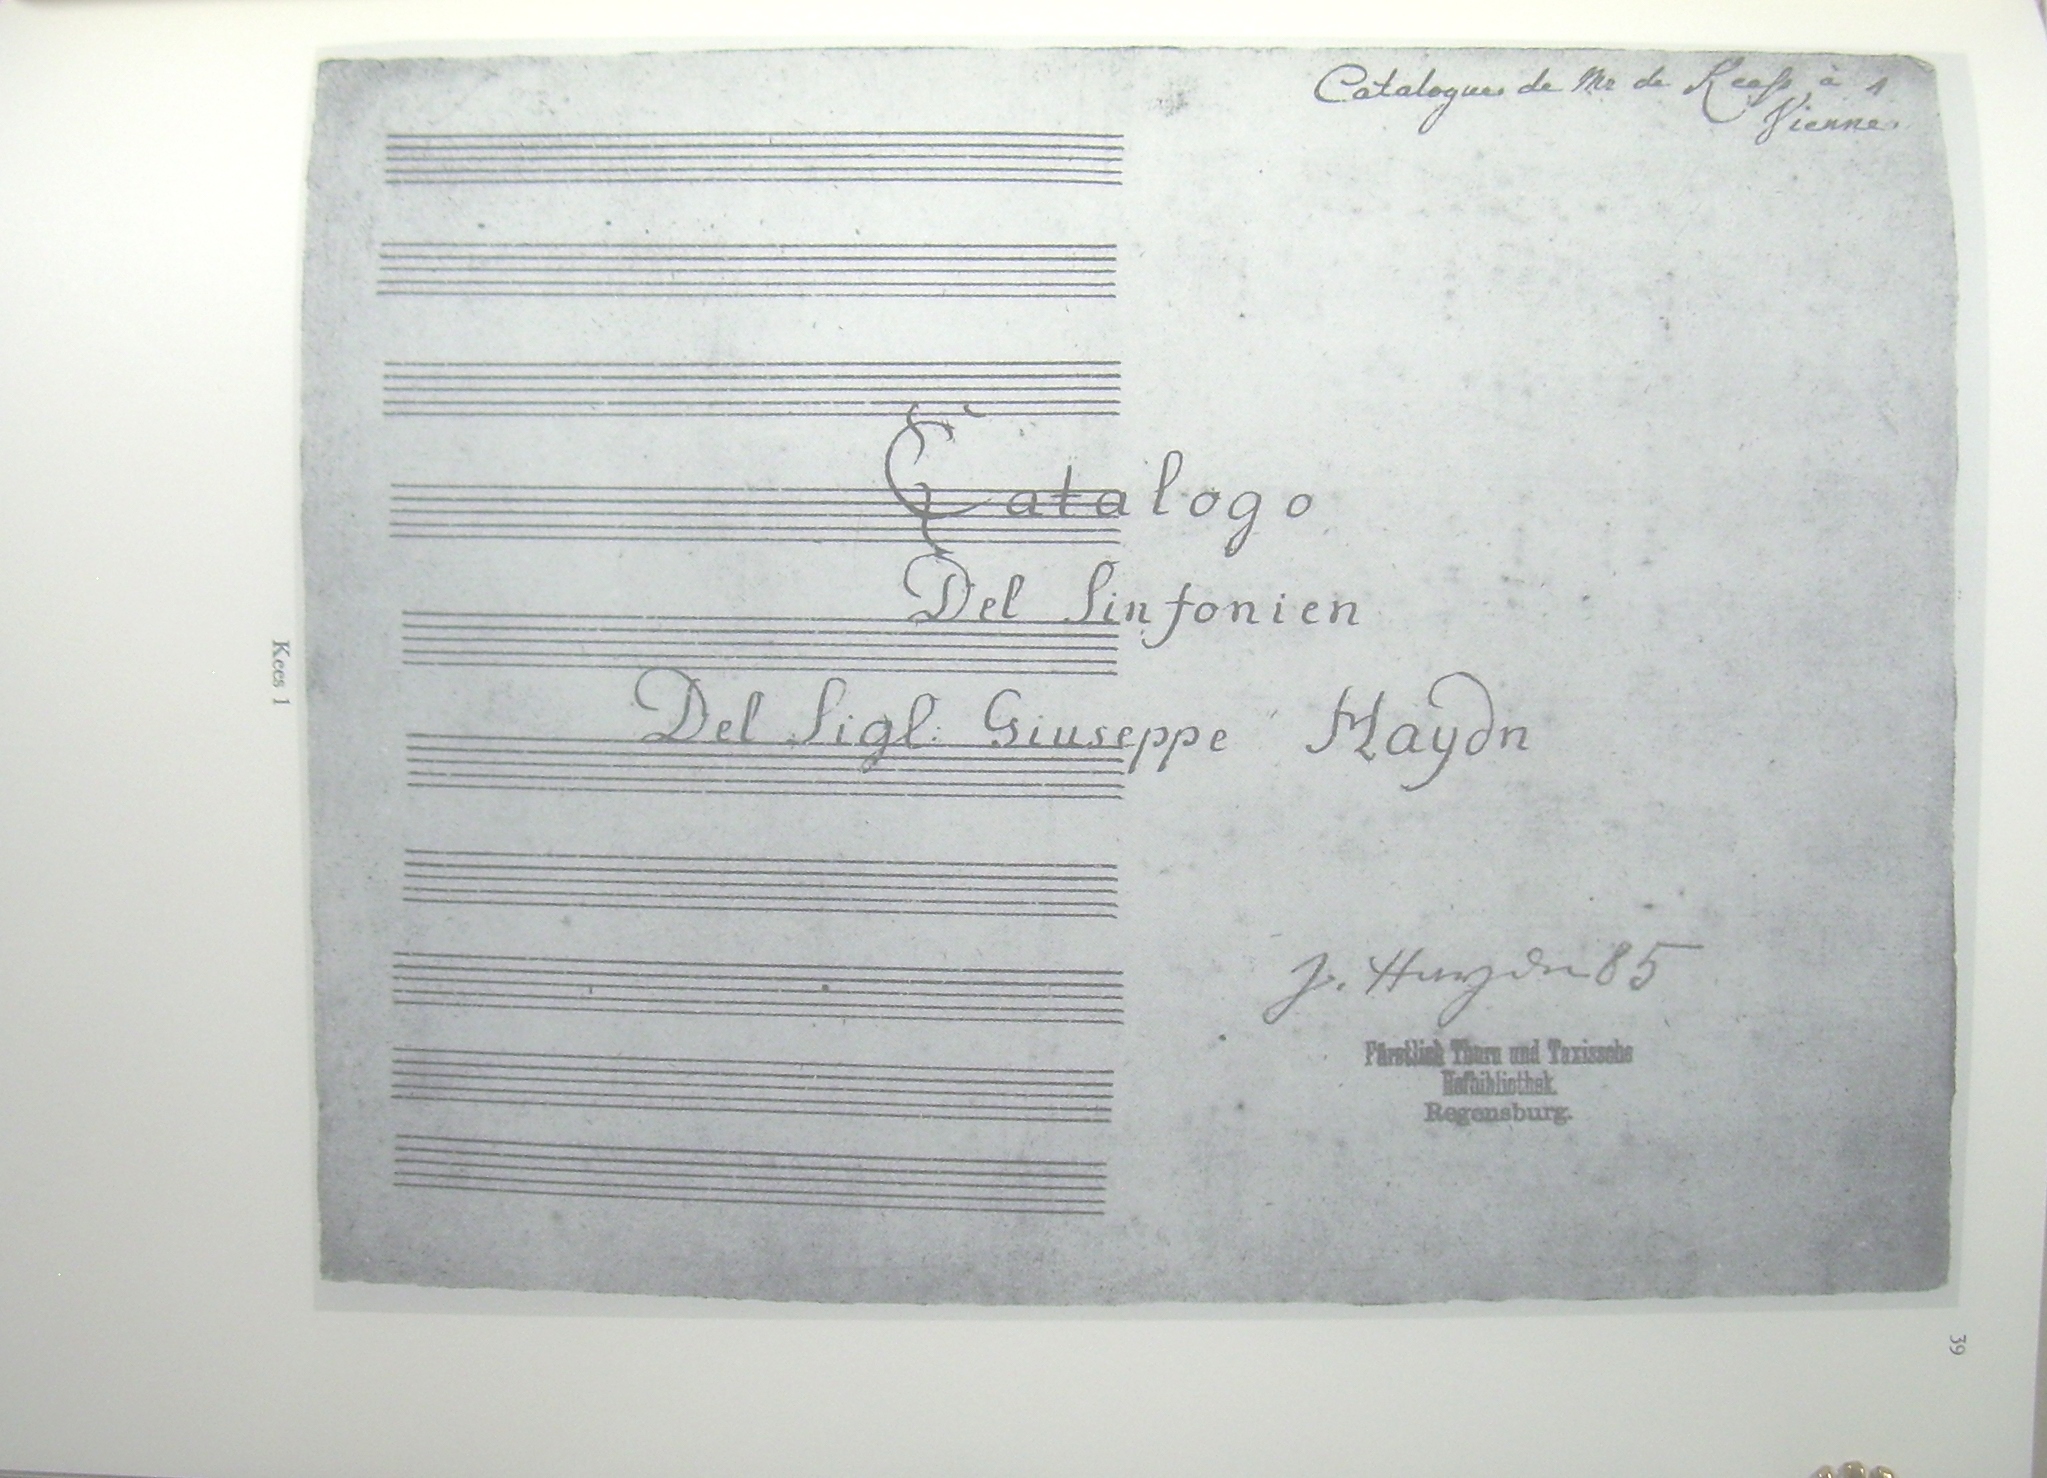 Catalogue de Mr de Keess à 1
Vienne
Catalogo
Del Sinfonien
Del Sigl: Giuseppe Haydn
J. Haydn 85
Fürstlich Thurn und Taxissche
Hofbibliothek.
Regensburg.
Kees 1
39